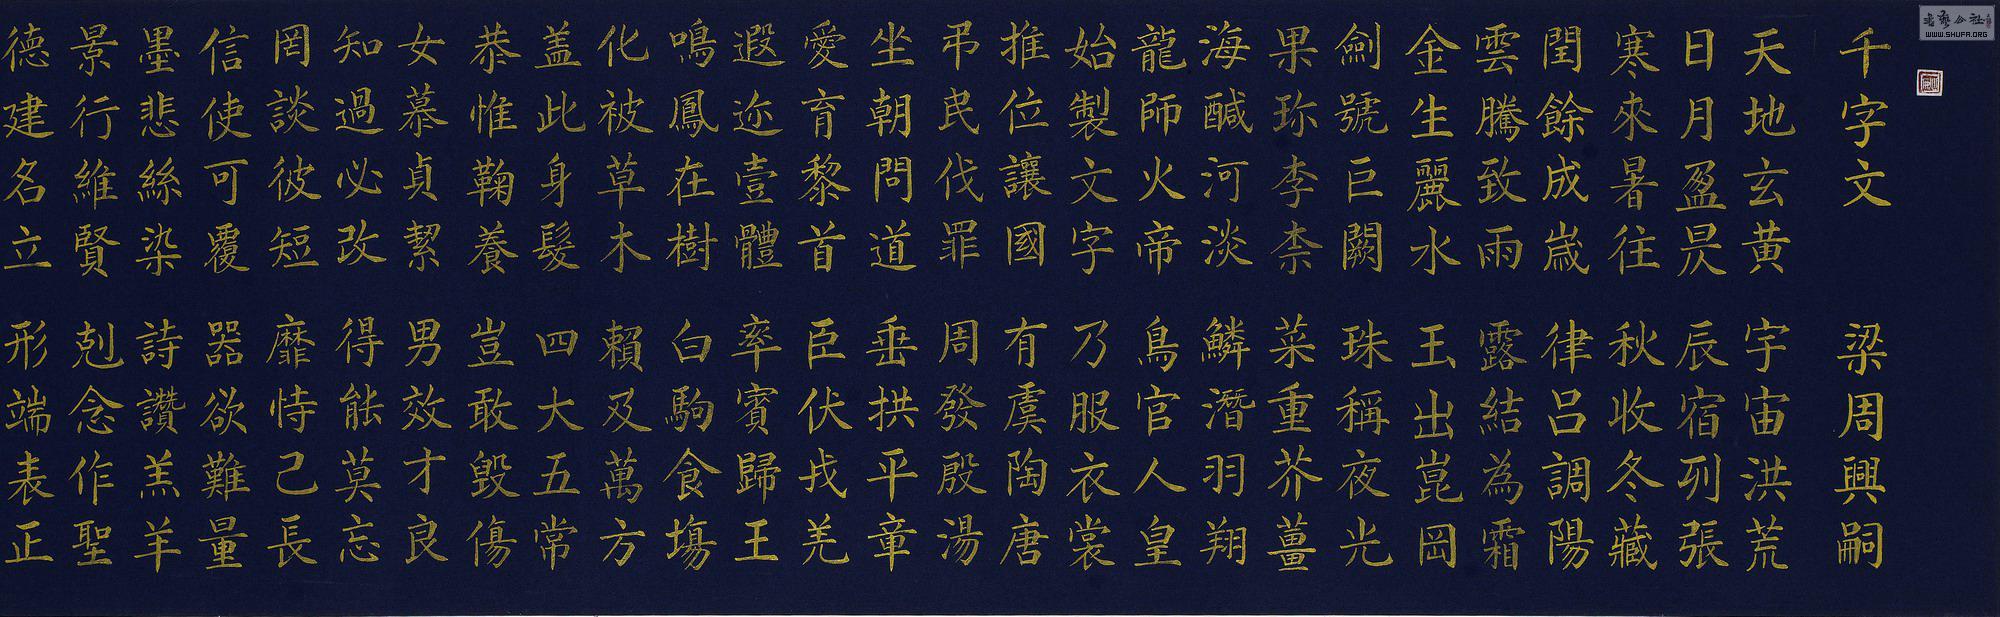 千字文 梁周興嗣
天地玄黃 宇宙洪荒
日月盈昃 辰宿列張
寒來暑往 秋收冬藏
閏餘成歲 律呂調陽
雲騰致雨 露結為霜
金生麗水 玉出崑岡
劍號巨闕 珠稱夜光
果珎李柰 菜重芥薑
海醎河淡 鱗潛羽翔
龍師火帝 鳥官人皇
始製文字 乃服衣裳
推位讓國 有虞陶唐
弔民伐罪 周發殷湯
坐朝問道 垂拱平章
愛育黎首 臣伏戎羌
遐迩壹體 率賓歸王
鳴鳳在樹 白駒食場
化被草木 賴及萬方
盖此身髮 四大五常
恭惟鞠養 豈敢毀傷
女慕貞絜 男效才良
知過必改 得能莫忘
罔談彼短 靡恃己長
信使可覆 器欲難量
墨悲絲染 詩讚羔羊
景行維賢 剋念作聖
德建名立 形端表正
书艺公社
WWW.SHUFA.ORG